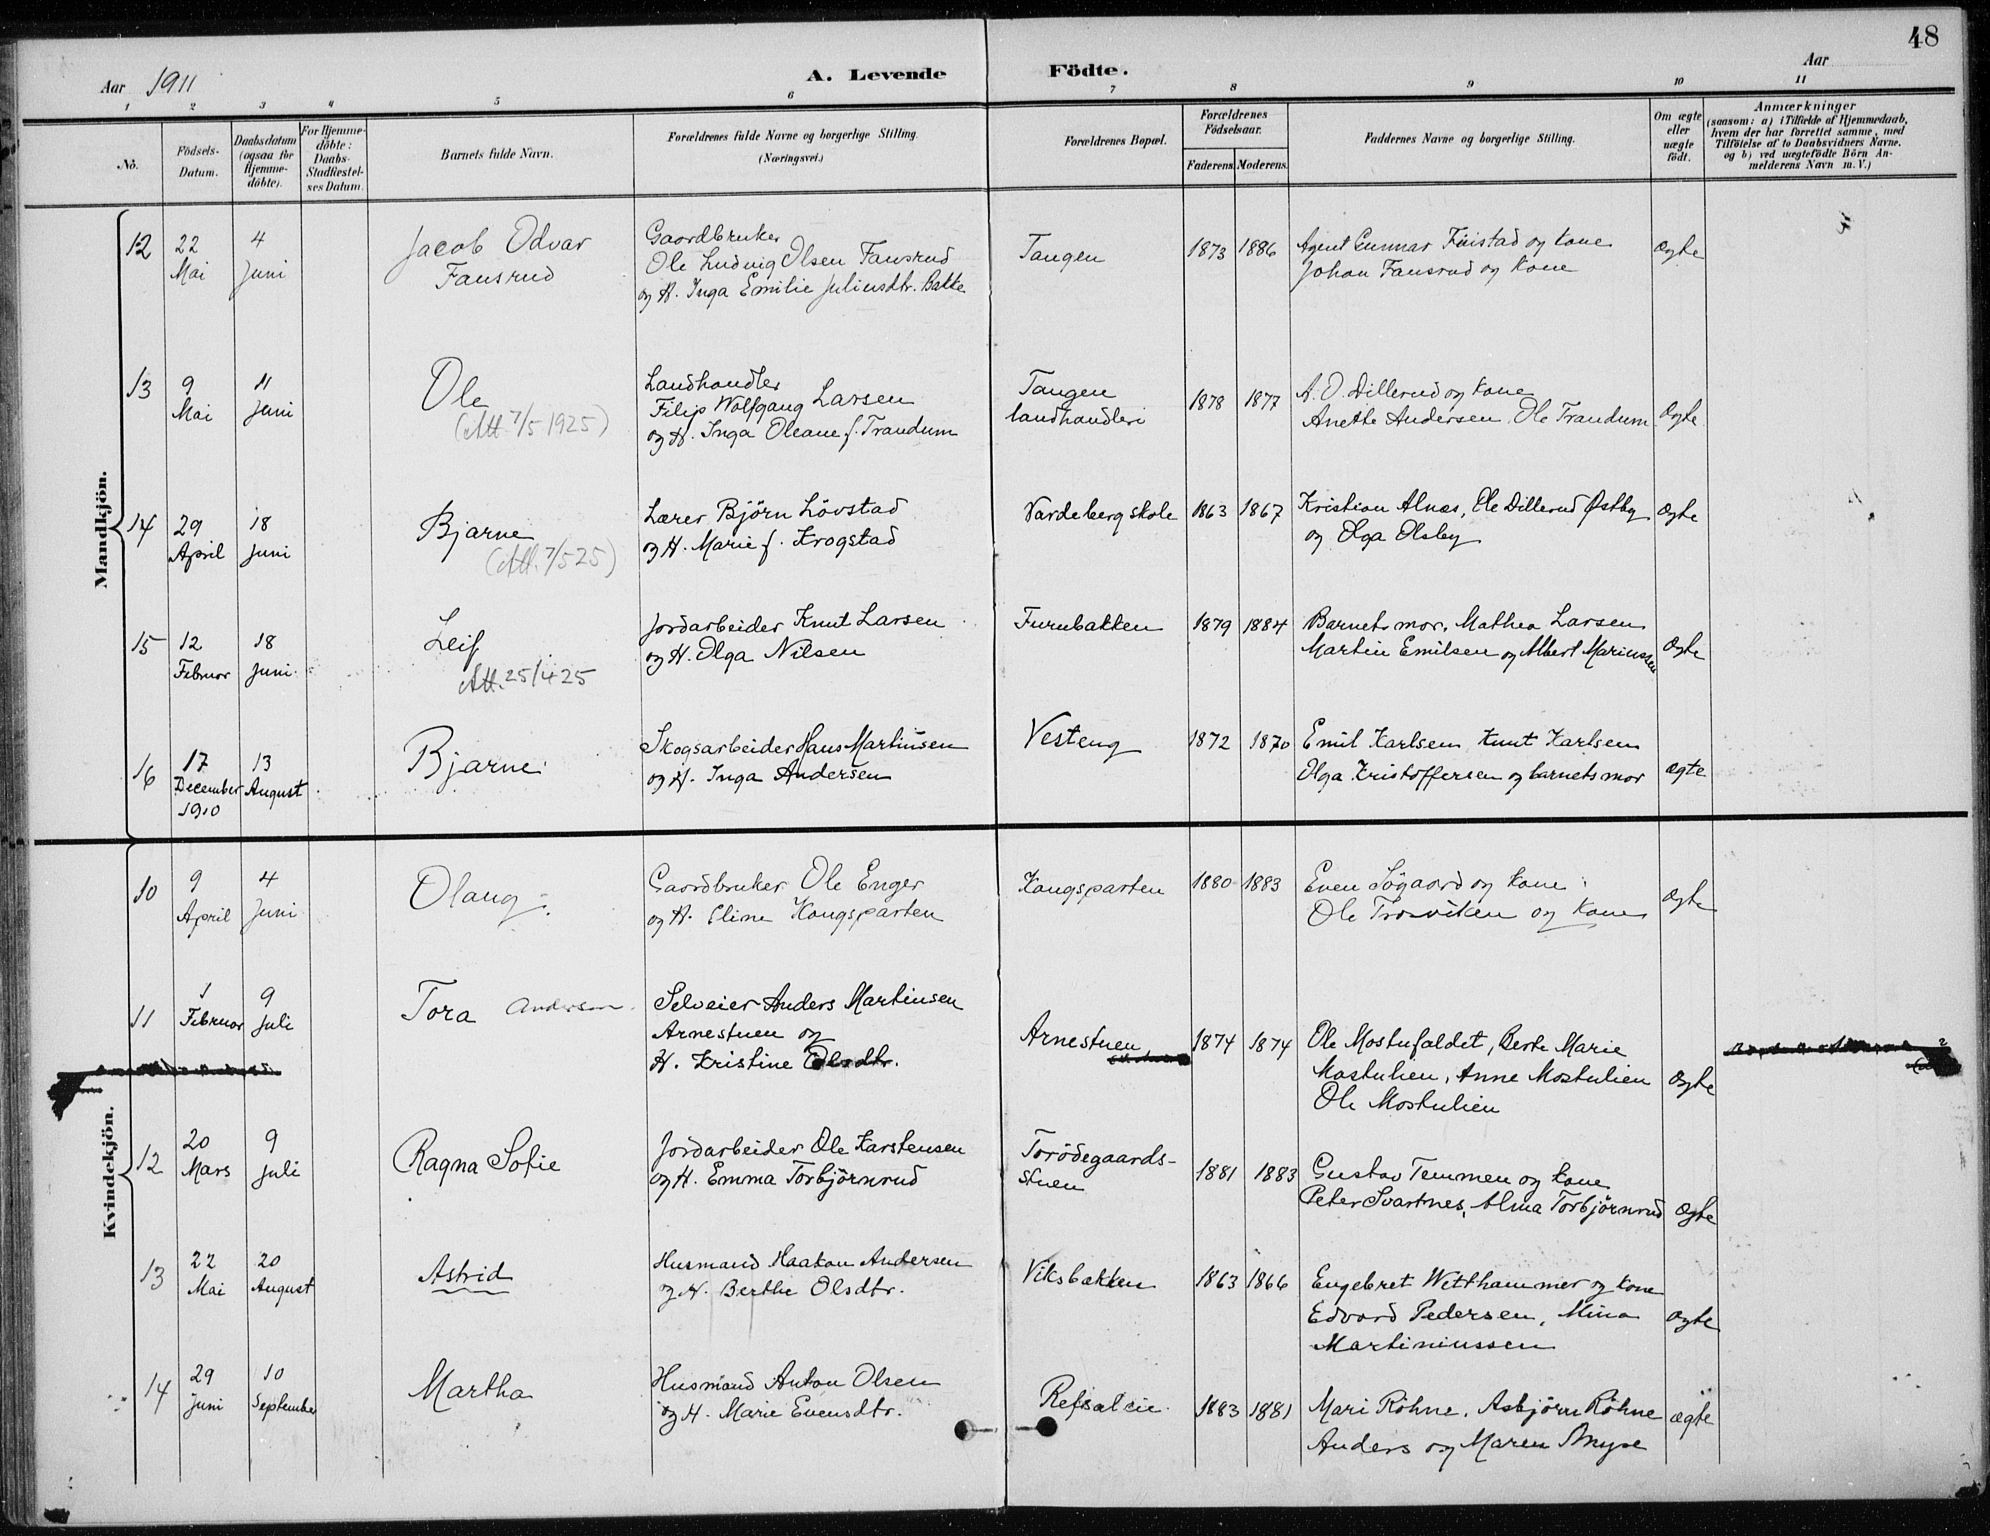 48
Aar 1911
A. Levende Födte.
Aar
1 2 3 4 5 6 7 8 9 10 11
No.
Födsels-Datum.
Daabsdatum (ogsaa for Hjemme-döbte).
For Hjemme-döbte: Daabs-Stadfæstel-ses Datum.
Barnets fulde Navn.
Forældrenes fulde Navne og borgerlige Stilling. (Næringsvei.)
Forældrenes Bopæl.
Forældrenes Födselsaar.
Faderens. Moderens.
Faddernes Navne og borgerlige Stilling.
Om ægte eller uægte födt.
Anmærkninger (saasom: a) i Tilfælde af Hjemmedaab, hvem der har forrettet samme, med Tilföielse af to Daabsvidners Navne. og b) ved uægtefödte Börn An-melderens Navn m. V.)
Mandkjön.
12 22 Mai 4 Juni
Jacob Odvar Fausrud
Gaardbruker
Ole Ludvig Olsen Fausrud
og H. Inga Emilie Juliusdtr. Bakke
Tangen 1873 1886
Agent Gunnar Finstad og kone
Johan Fausrud og kone
ægte
13 9 Mai 11 Juni
Ole
(Att. 7/5 1925)
Landhandler
Filip Wolfgang Larsen
og H. Inga Oleane f. Trandum
Tangen
landhandleri
1878 1877
A. O. Dillerud og kone
Anette Andersen Ole Trandum
ægte
14 29 April 18 Juni
Bjarne
(Att. 7/5 25)
Lærer Björn Lövstad
og H. Marie f. Krogstad
Vardeberg skole 1863 1867
Kristian Alnæs, Ole Dillerud Østby
og Olga Olsby
ægte
15 12 Februar 18 Juni
Leif
Att. 25/4 25
Jordarbeider Knut Larsen
og H. Olga Nilsen
Furubakken 1879 1884
Barnets mor, Mathea Larsen
Martin Emilsen og Albert Mariussen
ægte
16 17 December 1910 13 August
Bjarne
Skogsarbeider Hans Martinsen
og H. Inga Andersen
Vesteng 1872 1870
Emil Karlsen Knut Karlsen
Olga Kristoffersen og barnets mor
ægte
Kvindekjön.
10 9 April 4 Juni
Olaug
Gaardbruker Ole Enger
og H. Eline Kongsparten
Kongsparten 1880 1883
Even Sögaard og kone
Ole Trosviken og kone
ægte
11 1 Februar 9 Juli
Tora Andersen
Selveier Anders Martinsen
Arnestuen og
H. Kristine Olsdtr.
Arnestuen 1874 1874
Ole Mostufaldet, Berte Marie
Mostulien, Anne Mostulien
Ole Mostulien
ægte
12 20 Mars 9 Juli
Ragna Sofie
Jordarbeider Ole Karstensen
og H. Emma Torbjörnrud
Torödegaards-
stuen
1881 1883
Gustav Temmen og kone
Peter Svartnes, Alma Torbjörnrud
ægte
13 22 Mai 20 August
Astrid
Husmand Haakon Andersen
og H. Berthe Olsdtr.
Viksbakken 1863 1866
Engebret Wetthammer og kone
Edvard Pedersen, Mina
Martiniussen
ægte
14 29 Juni 10 September
Martha
Husmand Anton Olsen
og H. Marie Evensdtr.
Refsaleie 1883 1881
Mari Röhne, Asbjörn Röhne
Anders og Maren Myse
ægte